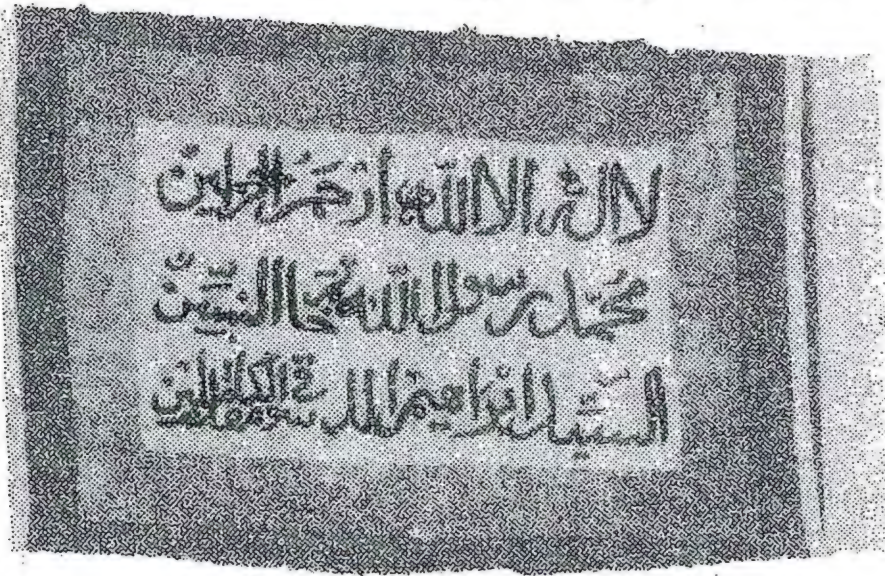 لا اله الا الله ارحم الراحمين
محمد رسول الله خاتم النبيين
السيد ابراهيم الدسوقي